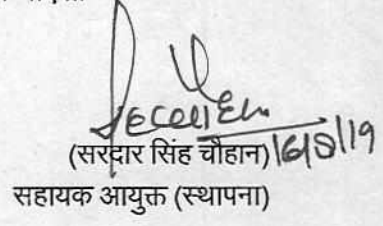 (सरदार सिंह चौहान) 16/8/19
सहायक आयुक्त (स्थापना)